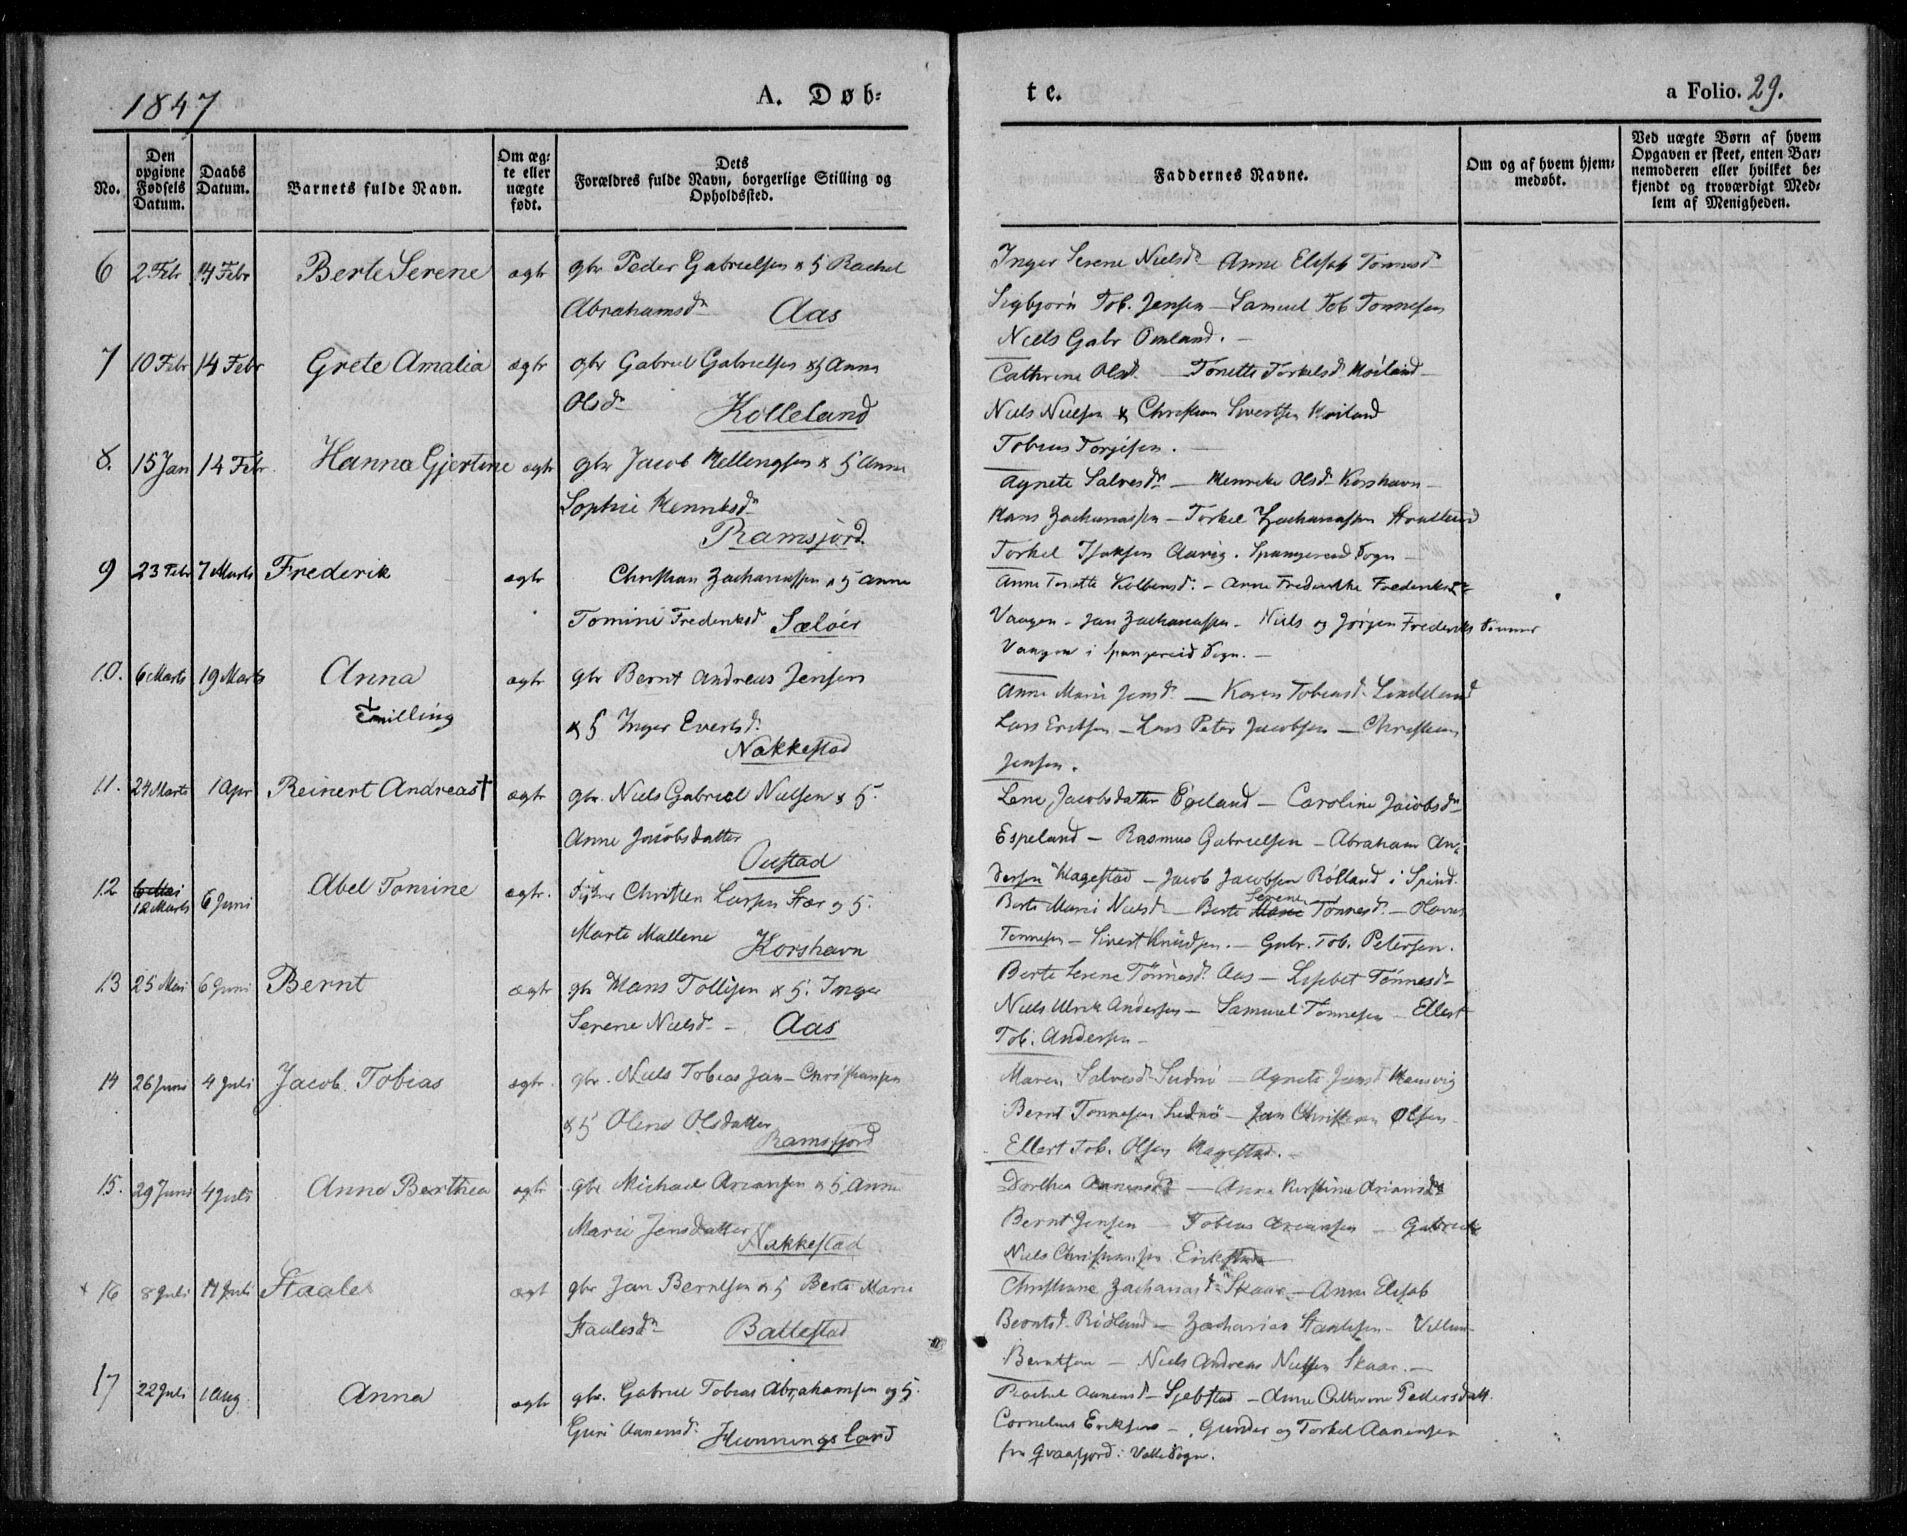 1847
A. Døb-
te.
a Folio. 29.
No.
Den opgivne Fødsels Datum.
Daabs Datum.
Barnets fulde Navn.
Om æg-te eller uægte født.
Dets Forældres fulde Navn, borgerlige Stilling og Opholdssted.
Faddernes Navne.
Om og af hvem hjem-medøbt.
Ved uægte Børn af hvem Opgaven er skeet, enten Bar-nemoderen eller hvilket be-kjendt og troværdigt Med-lem af Menigheden.
6 2 Febr 14 Febr Berte Serene ægte gbr Peder Gabrielsen & H Rachel
Abrahamsdr Aas
Inger Serene Nielsdr Anne Elisab Tønnesdr
Sigbjørn Tob. Jensen – Samuel Tob Tønnesen
Niels Gabr Omland. –
7 10 Febr 14 Febr Grete Amalia ægte gbr Gabriel Gabrielsen & H Anna
Olsdr Kolleland
Cathrine Olsdr – Tonette Torkelsdr Møiland –
Niels Nielsen & Christian Sivertsen Møiland
Tobias Torgisen. –
8. 15 Jan 14 Febr. Hanna Gjertine ægte gbr Jacob Mellingsen & H Anne
Sophie Henriksdr
Ramsfjord.
Agnete Salvesdr – Henrike Olsdr Korshavn –
Hans Zachariassen – Torkel Zachariassen
Torkel Isaksen Aavig. Spangereid Sogn –
9 23 Febr 7 Marts Frederik ægte Christian Zachariassen & H Anne
Tomine Frederiksdr Sæløer
Anne Tonette Kolbensdr. – Anne Frederikke Frederiksdr
Vaagen – Jan Zachariassen – Niels og Jørgen Frederiks Sønner
Vaagen i Spangereid Sogn. –
10. 6 Marts 19 Marts Anna ægte gbr Bernt Andreas Jensen
Tvilling
& H Inger Evertsdr.
Nakkestad
Anne Marie Jensdr – Karen Tobiasdr Lindeland
Lars Ericksen – Lars Peter Jacobsen – Christian
Jensen.
11. 24 Marts 1 Apr Reinert Andreas † ægte gbr. Niels Gabriel Nielsen & H.
Anne Jacobsdatter
Oustad
Lene Jacobsdatter – Caroline Jacobsdr
Espeland – Rasmus Gabrielsen – Abraham An-
dersen Hagestad – Jacob Jacobsen Rølland i Spind.
12 6 Mai
12 Marts 6 Juni Abel Tomine ægte. Christen Larsen & H.
Marte Mallene Korshavn
Berte Marie Nielsdr – Berte Marie Serene Tønnesdr. –
Tønnesen – Sivert Knudsen. – Gabr. Tob. Petersen.
13 25 Mai 6 Juni Bernt ægte gbr Hans Tollisen & H. Inger
Serene Nielsdr – Aas
Berte Serene Tønnesdr. Aas – Lisbet Tønnesdr
Niels Ulrik Andersen – Samuel Tønnesen – Ellert
Tob. Andersen –
14 26 Juni 4 Juli Jacob Tobias ægte. gbr. Niels Tobias Jan-Christiansen
& H Olene Olsdatter
Ramsfjord
Maren Salvesdr – Agnete Jansdr
Bernt Tønnesen – Jan Christian Olsen
Ellert Tob. Olsen Hagestad. –
15. 29 Juni 4 Juli Anne Berthea ægte gbr Michael Ariansen & H Anne
Marie Jensdatter Nakkestad
Dorthea – Anne Kirstine Ariansdr
Bernt Jensen – Tobias Ariansen – Gabriel
Niels Christiansen
16 8 Juli 11 Juli Staale ægt gbr Jan Berntsen & H Berte Marie
Staalesdr Ballestad
Christiane Zachariasdr Skaar – Anne Elisab
Berntsdr. Rødland – Zacharias Staalesen – Villum
Berntsen – Niels Andreas Nielsen Skaar. –
17 22 Juli 1 Aug. Anna ægte gbr. Gabriel Tobias Abrahamsen og H.
Guri Aanensdr. Hunningsland
Rachel Aanensdr – – Anne Cathrine Pedersdatt.
Cornelius Eriksen – Gunder og Torkel Aanensen
fra Qvaafjord: Valle Sogn.